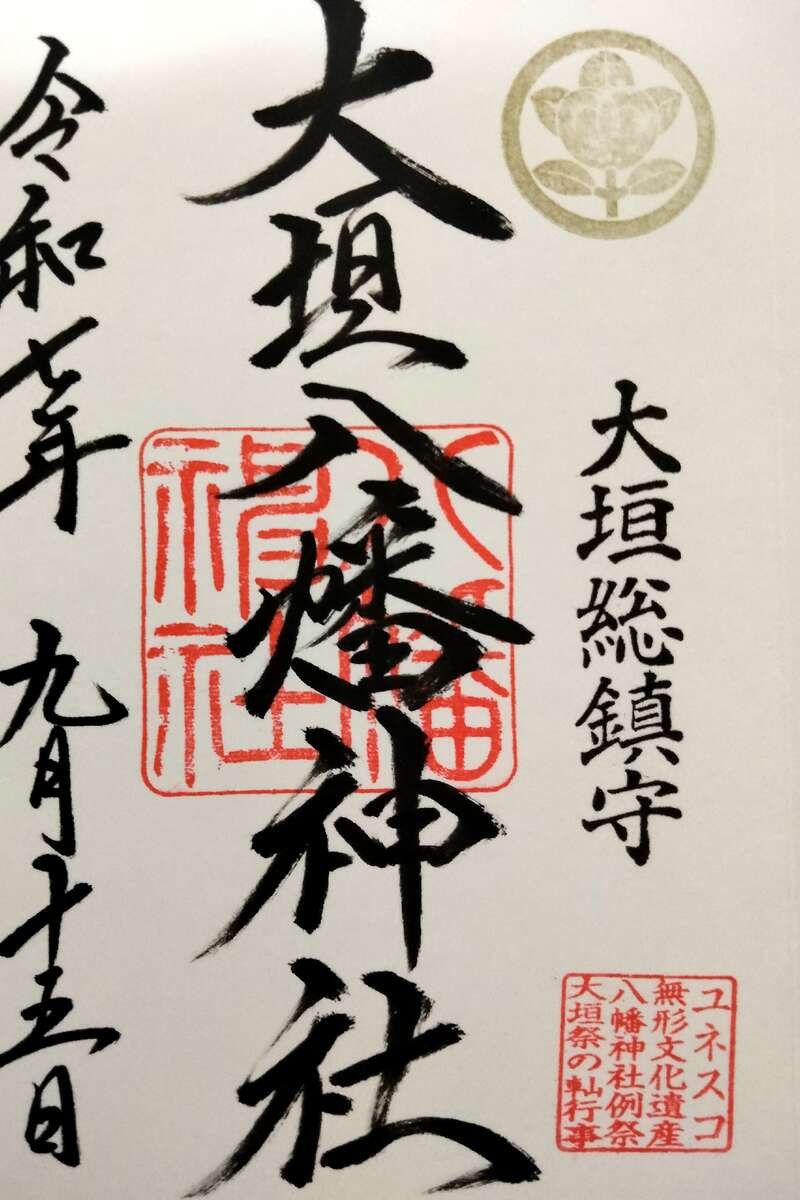 大垣総鎮守
ユネスコ
無形文化遺産
八幡神社例祭
大垣祭の軕行事
大垣八幡神社
八幡
神社
令和七年 九月十五日